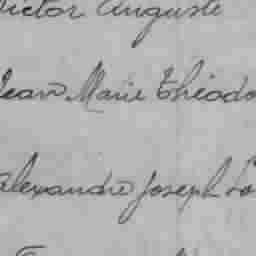 Victor Auguste
Jean Marie Théodo
Alexandre Joseph Lo